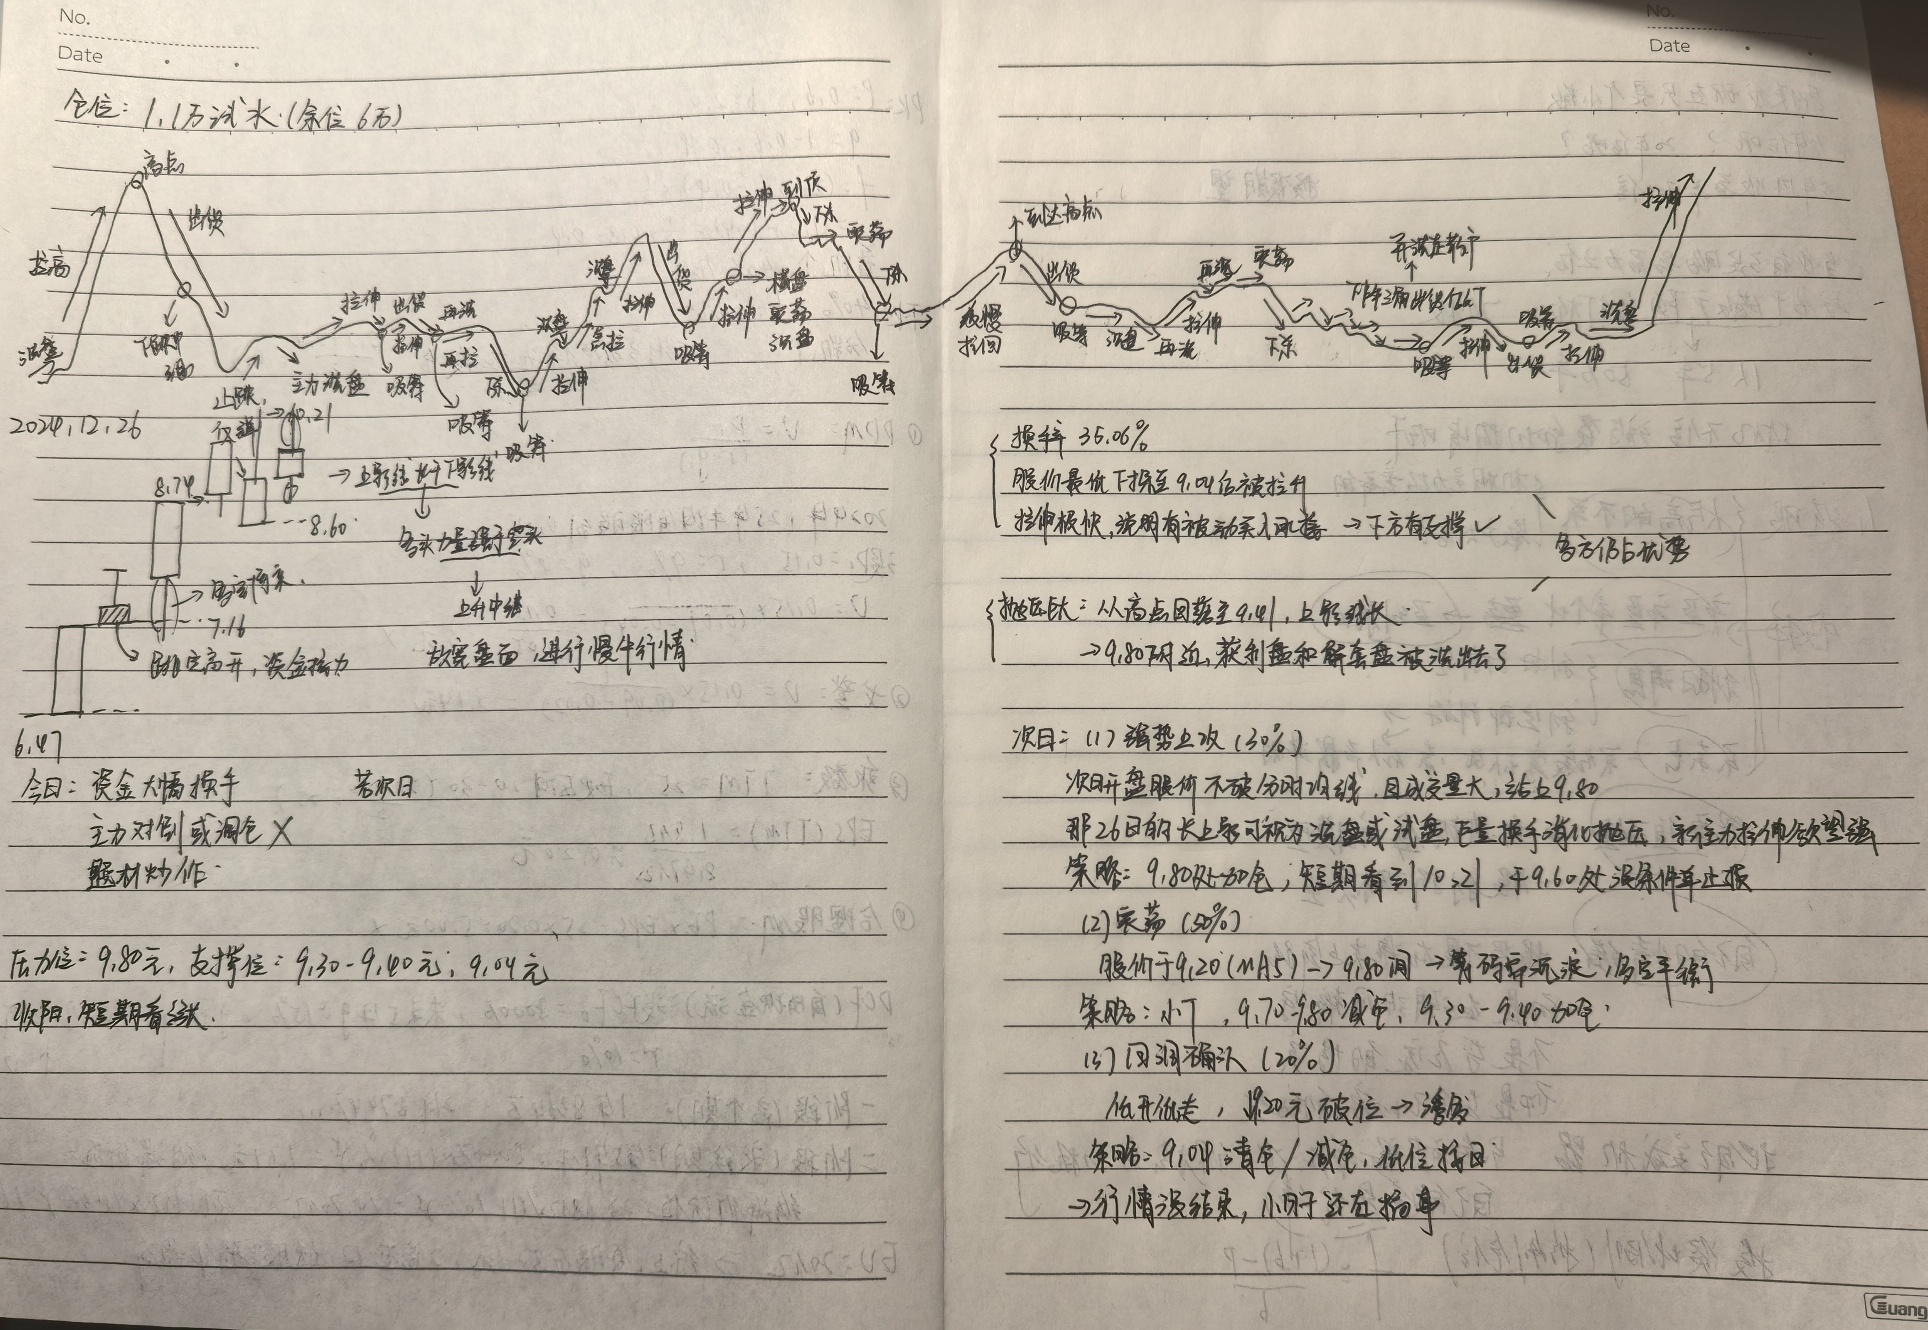 No.
Date
仓位：1.1万试水.(余位6万)
高点
拉高
出货
洗盘
止跌
主力洗盘
拉伸
出货
拉伸
吸筹
再洗
再拉
吸筹
下杀
吸筹
拉伸
洗盘
急拉
洗盘
拉伸
出货
吸筹
拉伸
横盘
震荡
洗盘
拉伸
到顶
下杀
震荡
下杀
吸筹
2024.12.26
10.21
8.74
8.60
→上影线长于下影线
多头力量强于空头
上升中继
7.16
高开，资金接力
放宽盘面，进行慢牛行情.
6.47
今日：资金大幅换手
若次日
主力对倒或调仓 X
题材炒作.
压力位：9.80元，支撑位：9.30-9.40元；9.04元
收阳，短期看涨.
No.
Date
到达高点
缓慢
拉回
出货
吸筹
洗盘
再洗
拉伸
再洗
震荡
下杀
吸筹
拉伸
出货
吸筹
拉伸
洗盘
拉伸
换手率 35.06%
股价最低下探至9.04后被拉升
拉伸极快，说明有被动买入承接 → 下方有支撑✓
多方仍占优势
抛压大：从高点回落至9.41，上影线长.
→9.80附近，获利盘和解套盘被洗出去了
次日：(1)强势上攻(30%)
次日开盘股价不破分时均线，且成交量大，站上9.80
那26日的长上影可视为洗盘或试盘，巨量换手消化抛压，新主力拉伸欲望强
策略：9.80处加仓，短期看到10.21，于9.60处设条件单止损
(2)震荡(50%)
股价于9.20(MA5)→9.80间→筹码需沉淀，多空平衡
策略：小T，9.70-9.80减仓，9.30-9.40加仓.
(3)回调确认(20%)
低开低走，9.20元破位→诱多
策略：9.04清仓/减仓，低位接回
→行情没结束，小明于还在场事
Guang